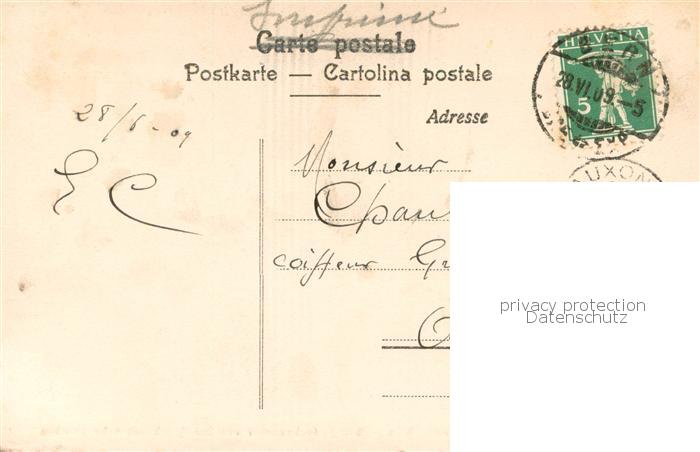 Imprimé
Carte postale
Postkarte — Cartolina postale
Adresse
HELVETIA
5
BERN
28.VI.09.-5
AUXON
28/6-09
E C
Monsieur
coiffeur
privacy protection
Datenschutz